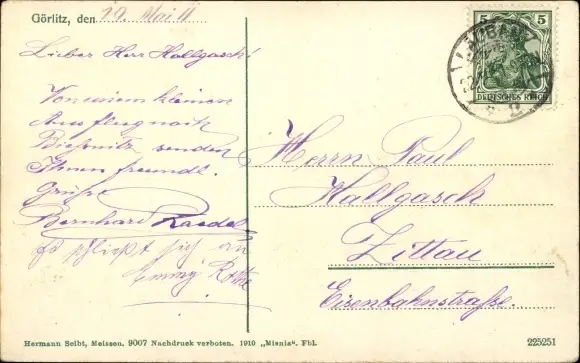 Görlitz, den 22. Mai 11
Lieber Herr Hallgasch!
Von einem kleinen
Ausflug nach
Biesnitz senden
Ihnen freundl.
Grüße
Bernhard
Es schließt sich an
Emmy
5 5
LAUBAN
DEUTSCHES REICH
Herrn Paul
Hallgasch
Zittau
Eisenbahnstraße.
Hermann Seibt, Meissen. 9007 Nachdruck verboten. 1910 „Misnia“. Fbl.
225251